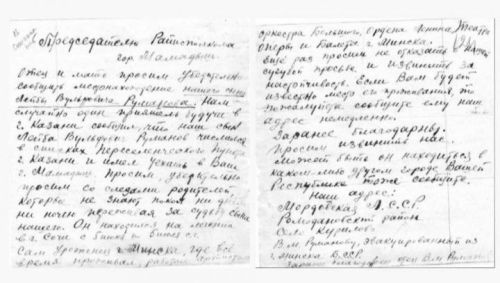 Председателю Райисполкома
гор. Мамадыш.
Отец и мать просим убедительно
сообщить местонахождение нашего сына
Лейбы Вульфовича Руманова. Нам
случайно один приятель будучи в
г. Казани сообщил, что наш сын
Лейба Вульфович Руманов числится
в списках Переселенческого пункта
г. Казани и имел уехать в Ваш
г. Мамадыш. Просим, убедительно
просим со слезами родителей,
которые не знают покоя ни днём
ни ночью переживая за судьбу сына
нашего. Он находился на лечении
в г. Сочи с 5 июня с.г.
Сам уроженец г. Минска, где всё
время проживал, работал артистом
оркестра Большого, Ордена Ленина, Театра
Оперы и Балета г. Минска.
Ещё раз просим не отказать в нашей
просьбе и извинить за
настойчивость. Если Вам будет
известно место его проживания, то
пожалуйста сообщите ему наш
адрес немедленно.
Заранее благодарны.
Просим извинить нас.
Может быть он находиться в
каком-либо другом городе Вашей
Республики тоже сообщите.
Наш адрес:
Мордовская А.С.С.Р.
Ромодановский район
Село Курилово
В.М. Руманову, эвакуированный из
г. Минска БССР.
Заранее благодарен отец В.М. Руманов